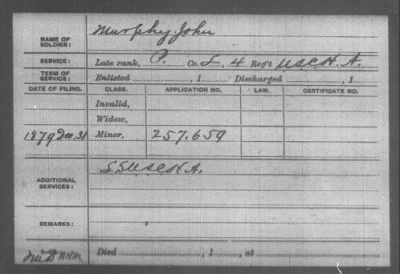 NAME OF SOLDIER: Murphy, John
SERVICE: Late rank, P. Co. L, 4 Reg't U.S.C.H.A.
TERM OF SERVICE: Enlisted , 1 Discharged , 1
DATE OF FILING. CLASS. APPLICATION NO. LAW. CERTIFICATE NO.
Invalid,
Widow,
1879 Dec. 31 Minor, 257.659
ADDITIONAL SERVICES: 5 U.S.C.H.A.
REMARKS:
Died , 1 , at